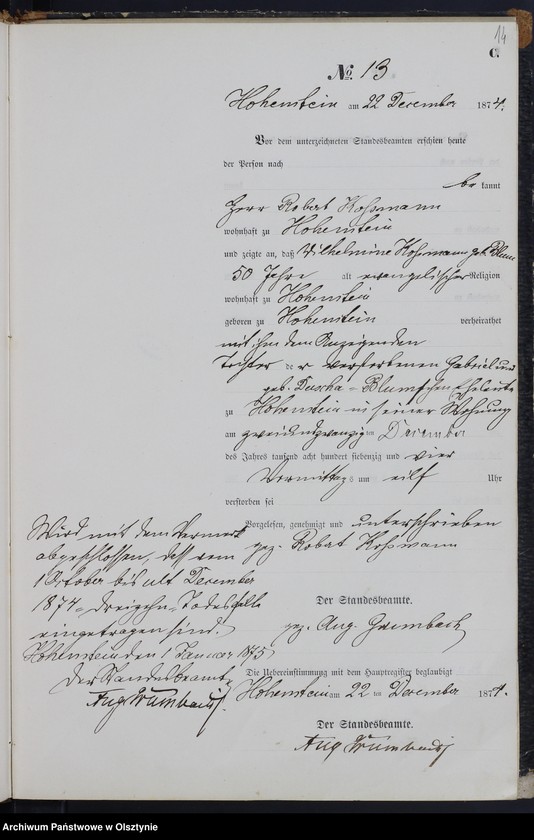 14
C.
No. 13.
Hohenstein am 22 December 1874.
Vor dem unterzeichneten Standesbeamten erschien heute
der Person nach
be kannt
Herr Robert Koßmann
wohnhaft zu Hohenstein
und zeigte an, daß Wilhelmine Koßmann geb. Blum
50 Jahre alt evangelischer Religion
wohnhaft zu Hohenstein
geboren zu Hohenstein verheirathet
mit ihm dem Anzeigenden
Tochter der verstorbenen Gabriel und
geb. Duscha-Blumschen Eheleute
zu Hohenstein in seiner Wohnung
am zweiundzwanzig ten December
des Jahres tausend acht hundert siebenzig und vier
Vormittags um eilf Uhr
verstorben sei
Vorgelesen, genehmigt und unterschrieben
gez. Robert Koßmann
Der Standesbeamte.
gez. Aug. Grumbach
Wird mit dem Vermerk
abgeschlossen, daß vom
1 October bis ult December
1874 - dreizehn - Todesfälle
eingetragen sind.
Hohenstein den 1 Januar 1875
Der Standesbeamte
Aug Grumbach
Die Uebereinstimmung mit dem Hauptregister beglaubigt
Hohenstein am 22 ten December 1874.
Der Standesbeamte.
Aug Grumbach
Archiwum Państwowe w Olsztynie